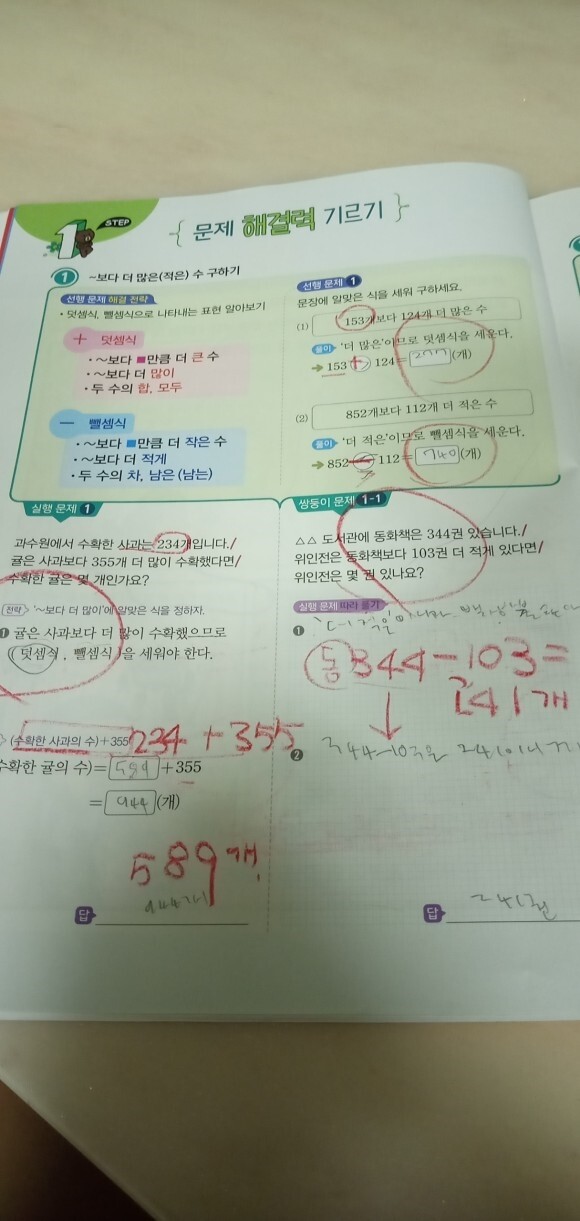 1
STEP
문제 해결력 기르기
1 ~보다 더 많은(적은) 수 구하기
선행 문제 해결 전략
• 덧셈식, 뺄셈식으로 나타내는 표현 알아보기
+ 덧셈식
• ~보다 ■만큼 더 큰 수
• ~보다 더 많이
• 두 수의 합, 모두
− 뺄셈식
• ~보다 ■만큼 더 작은 수
• ~보다 더 적게
• 두 수의 차, 남은 (남는)
선행 문제 1
문장에 알맞은 식을 세워 구하세요.
(1) 153개보다 124개 더 많은 수
풀이 '더 많은'이므로 덧셈식을 세운다.
→ 153 + 124 = 277 (개)
(2) 852개보다 112개 더 적은 수
풀이 '더 적은'이므로 뺄셈식을 세운다.
→ 852 − 112 = 740 (개)
실행 문제 1
과수원에서 수확한 사과는 234개입니다.
귤은 사과보다 355개 더 많이 수확했다면
수확한 귤은 몇 개인가요?
전략 '~보다 더 많이'에 알맞은 식을 정하자.
❶ 귤은 사과보다 더 많이 수확했으므로
(덧셈식, 뺄셈식)을 세워야 한다.
(수확한 사과의 수)+355
234 + 355
수확한 귤의 수)= 589 +355
= 944 (개)
589개
944개
답
쌍둥이 문제 1-1
△△ 도서관에 동화책은 344권 있습니다.
위인전은 동화책보다 103권 더 적게 있다면
위인전은 몇 권 있나요?
실행 문제 따라 풀기
❶
동 344-103=
241개
❷ 344-103은 241이니까
답 241권